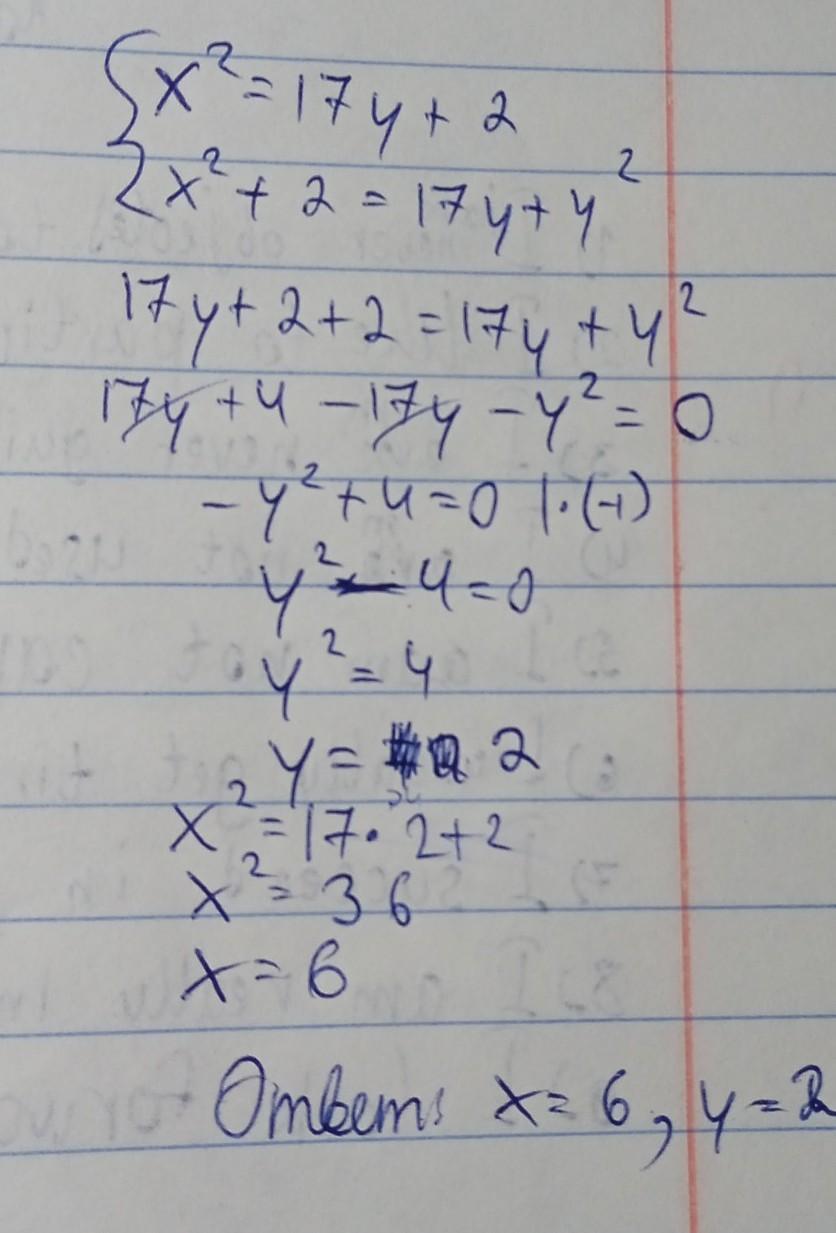 {x² = 17y + 2
x² + 2 = 17y + y²
17y + 2 + 2 = 17y + y²
17y + 4 - 17y - y² = 0
- y² + 4 = 0 |·(-1)
y² - 4 = 0
y² = 4
y = 2
x² = 17 · 2 + 2
x² = 36
x = 6
Ответ: x = 6, y = 2